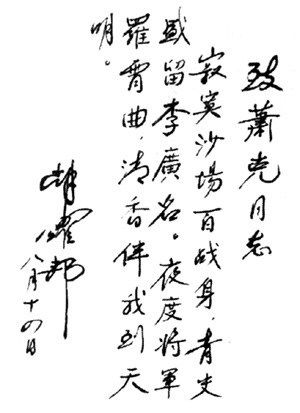 致萧克同志
寂寞沙場百战身，青史
盛留李廣名。夜度将軍
羅霄曲，清香伴我到天
明。
胡耀邦
八月十四日